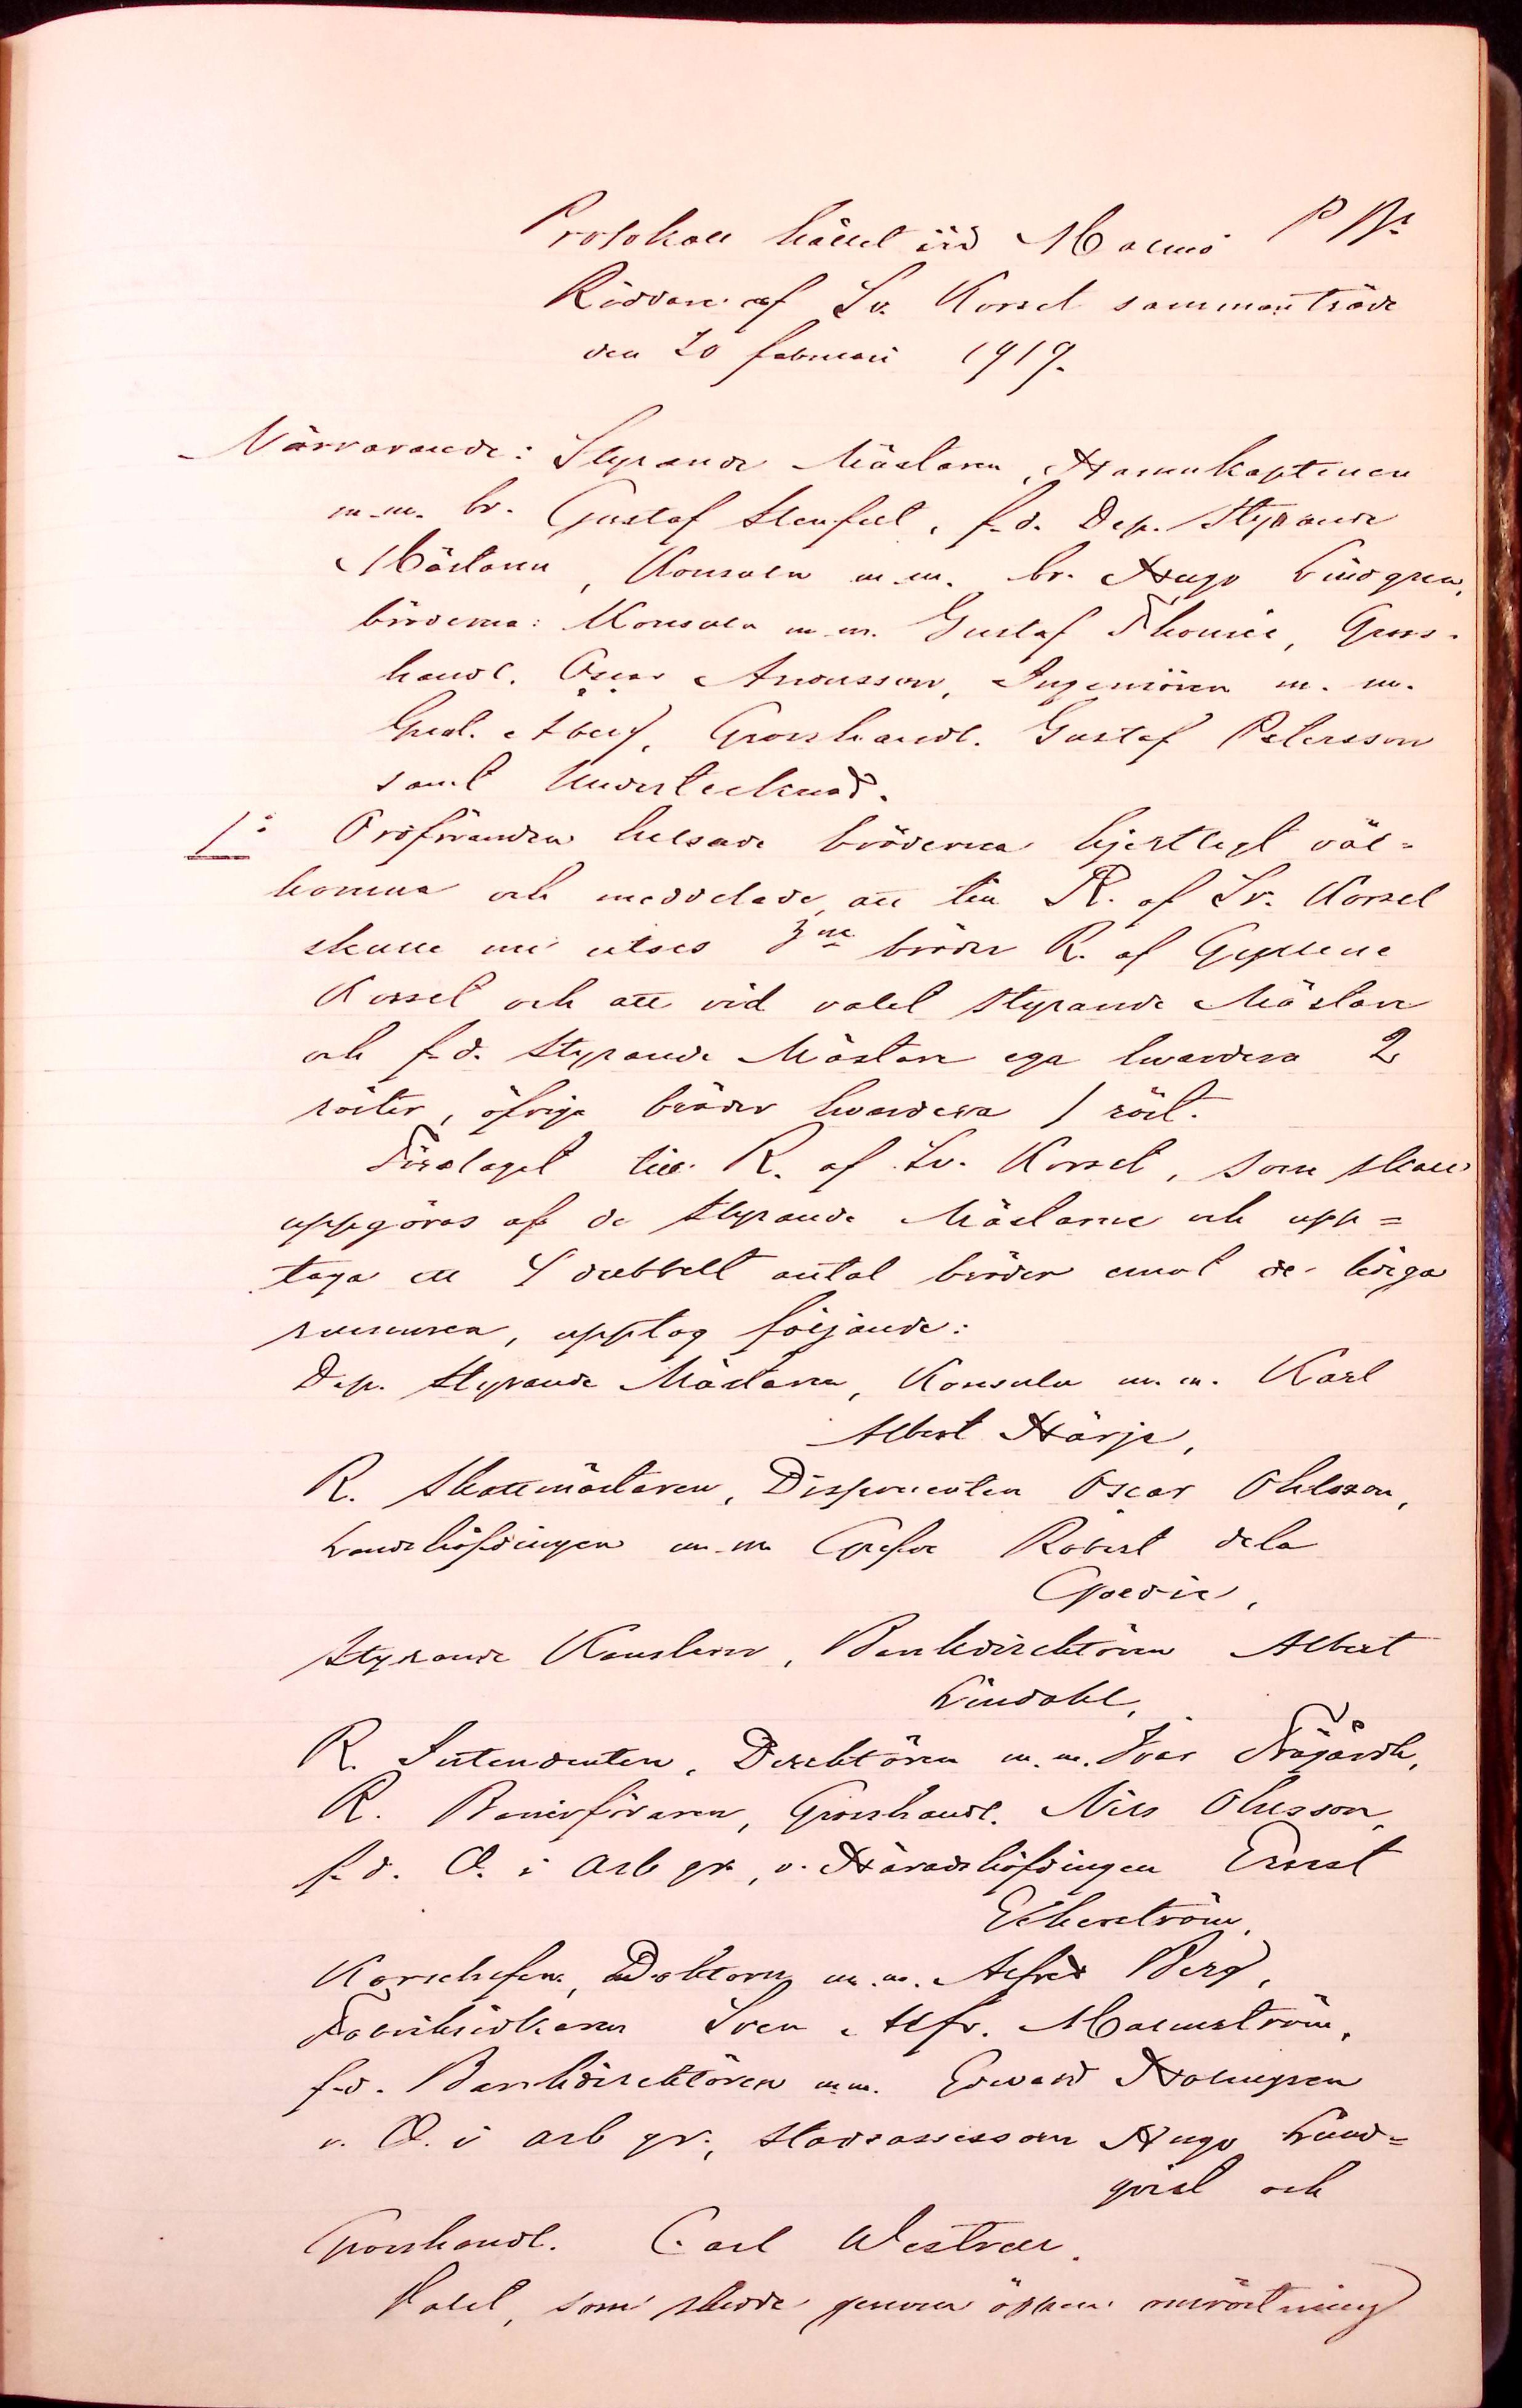 Protokoll hållet vid Malmö P Br
Riddare af Sv. Korset sammanträde
den 20 februari 1919.
Närvarande: Styrande Mästaren, Hamnkaptenen
m.m. br. Gustaf Stenfelt, f.d. Dep. Styrande
Mästaren, Konsuln m.m. br. Hugo Lindgren,
bröderna: Konsuln m.m. Gustaf Thomée, Gross-
handl. Oscar Andersson, Ingeniören m. m.
Fred. Åberg, Grosshandl. Gustaf Petersson
samt Undertecknad.
1: Ordföranden helsade bröderna hjertligt väl=
komna och meddelade, att till R. af Sv. Korset
skulle nu utses 3ne bröder R. af Gyllene
Korset och att vid valet Styrande Mästare
och f.d. Styrande Mästare ega hvardera 2
röster, öfriga bröder hvardera 1 röst.
Förslaget till R. af Sv. Korset, som skall
uppgöras af de Styrande Mästarne och upp=
taga ett 4 dubbelt antal bröder emot de lediga
rummen, upptog följande:
Dep. Styrande Mästaren, Konsuln m.m. Karl
Albert Härje,
R. Skattmästaren, Disponenten Oscar Ohlsson,
Landshöfdingen m.m. Grefve Robert de la
Gardie,
Styrande Kansleren, Bankdirektören Albert
Lindahl,
R. Intendenten, Direktören m.m. Ivar
R. Banérföraren, Grosshandl. Nils Olsson,
f.d. O. i arb gr, v. Häradshöfdingen Ernst
Ekerström,
Körchefen, Doktorn m.m. Alfred Berg,
Fabriksidkaren Sven Alfr. Malmström,
f.d. Bankdirektören m.m. Edward Holmgren
v. O. i arb gr., Stadsassessorn Hugo Lind=
qvist och
Grosshandl. Carl Westrell.
Valet, som skedde genom öppen omröstning